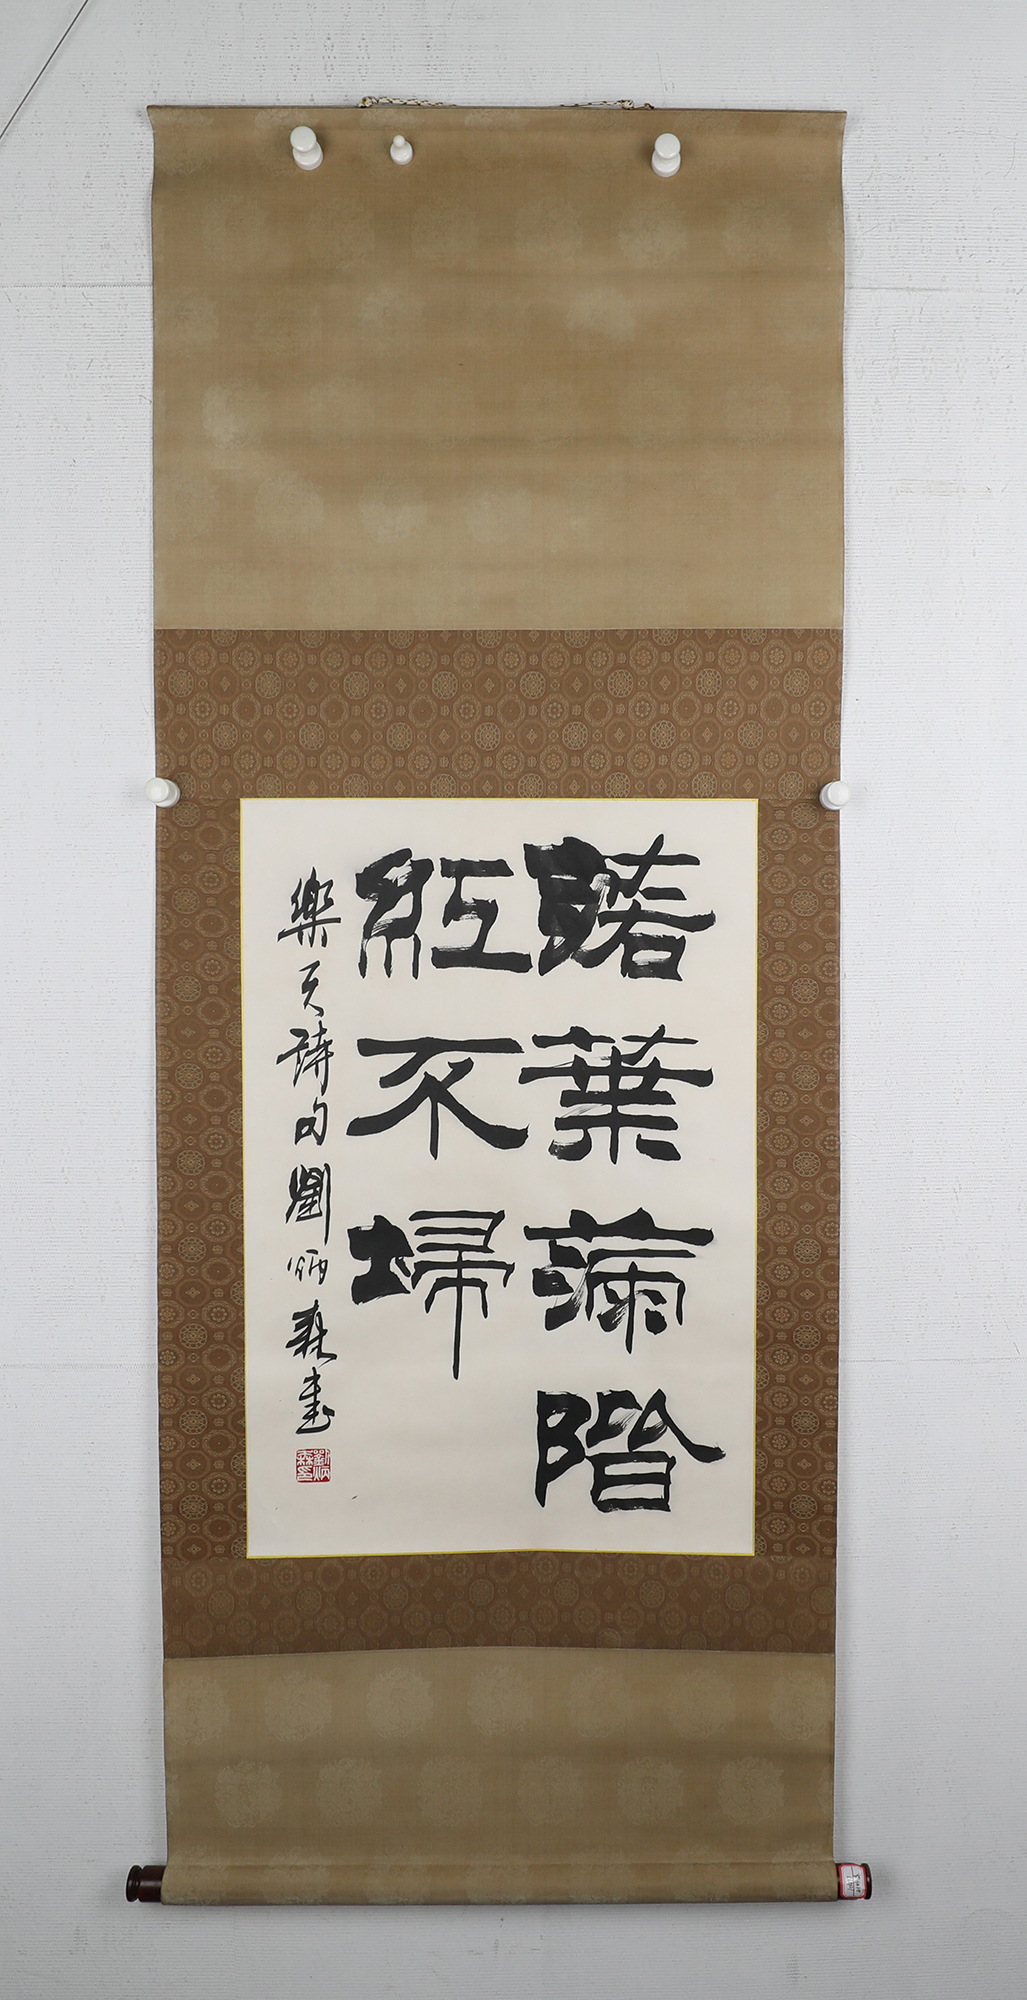 落葉滿階
紅不埽
樂天詩句劉炳森書
劉炳森印